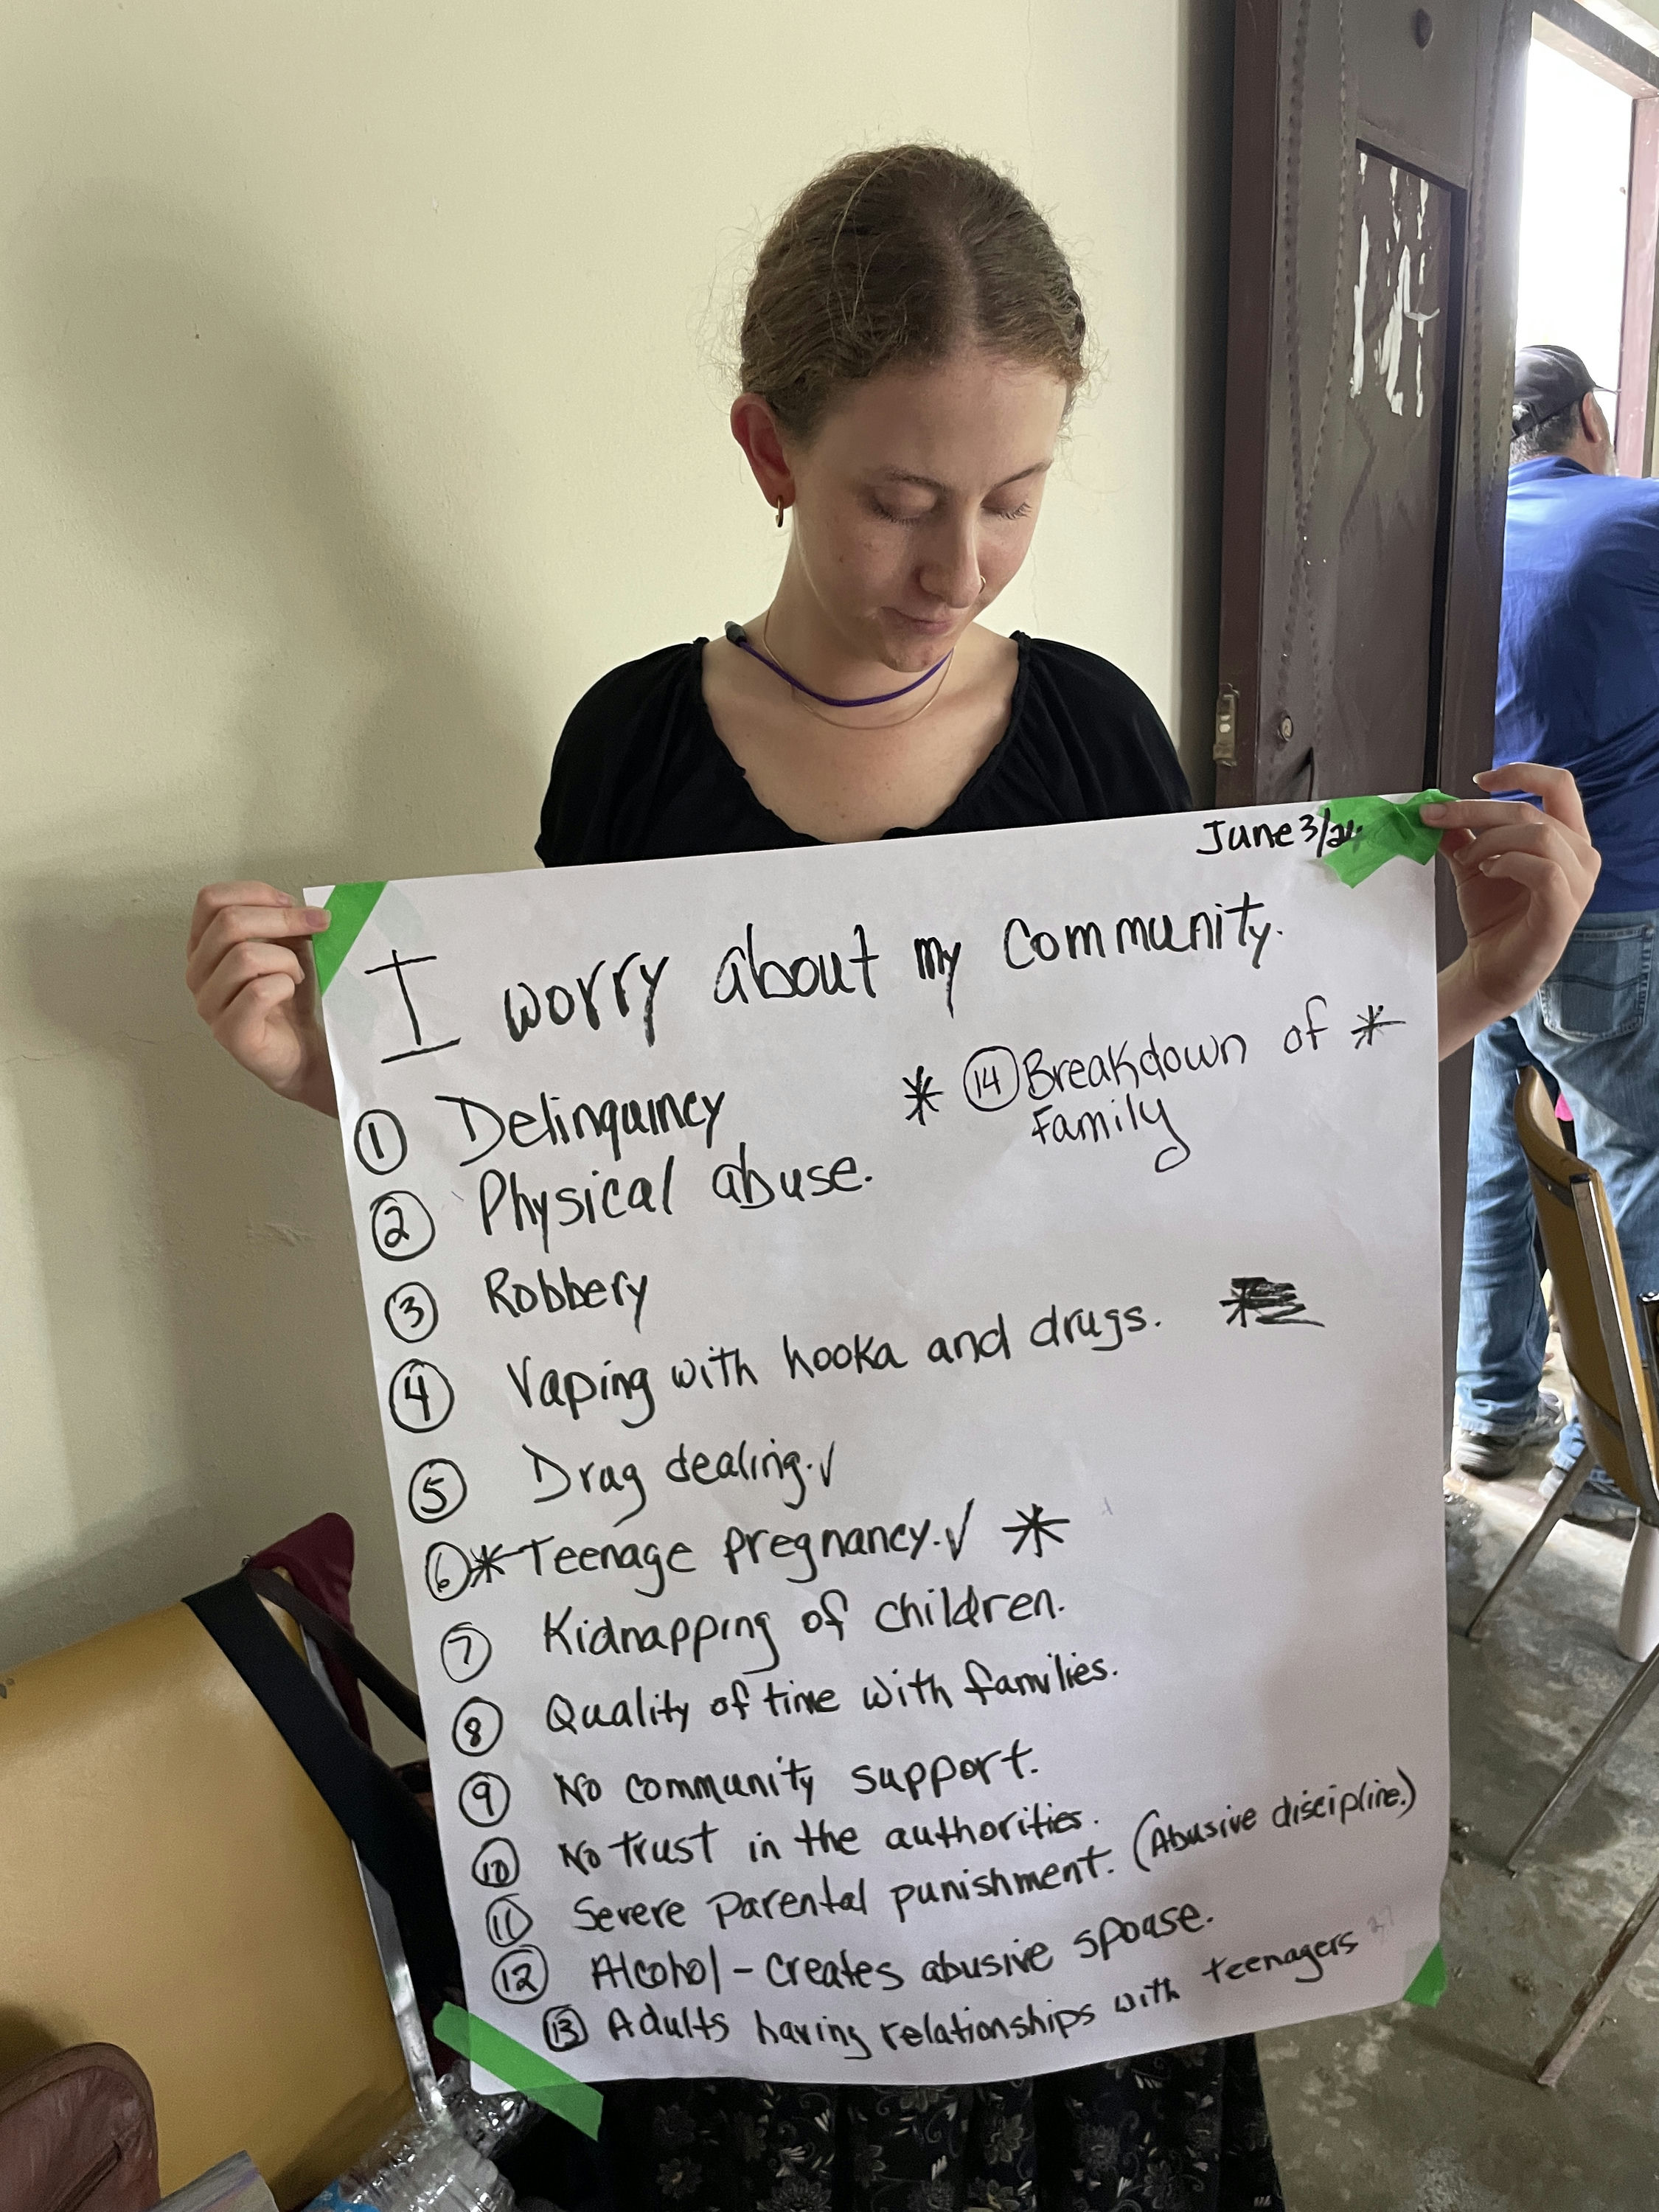 June 3/24
I worry about my community.
① Delinquincy
② Physical abuse.
③ Robbery
④ Vaping with hooka and drugs.
⑤ Drug dealing. ✓
⑥ * Teenage pregnancy. ✓ *
⑦ Kidnapping of children.
⑧ Quality of time with families.
⑨ No community support.
⑩ No trust in the authorities.
⑪ Severe Parental punishment. (Abusive discipline.)
⑫ Alcohol - creates abusive spouse.
⑬ Adults having relationships with teenagers
* ⑭ Breakdown of *
Family